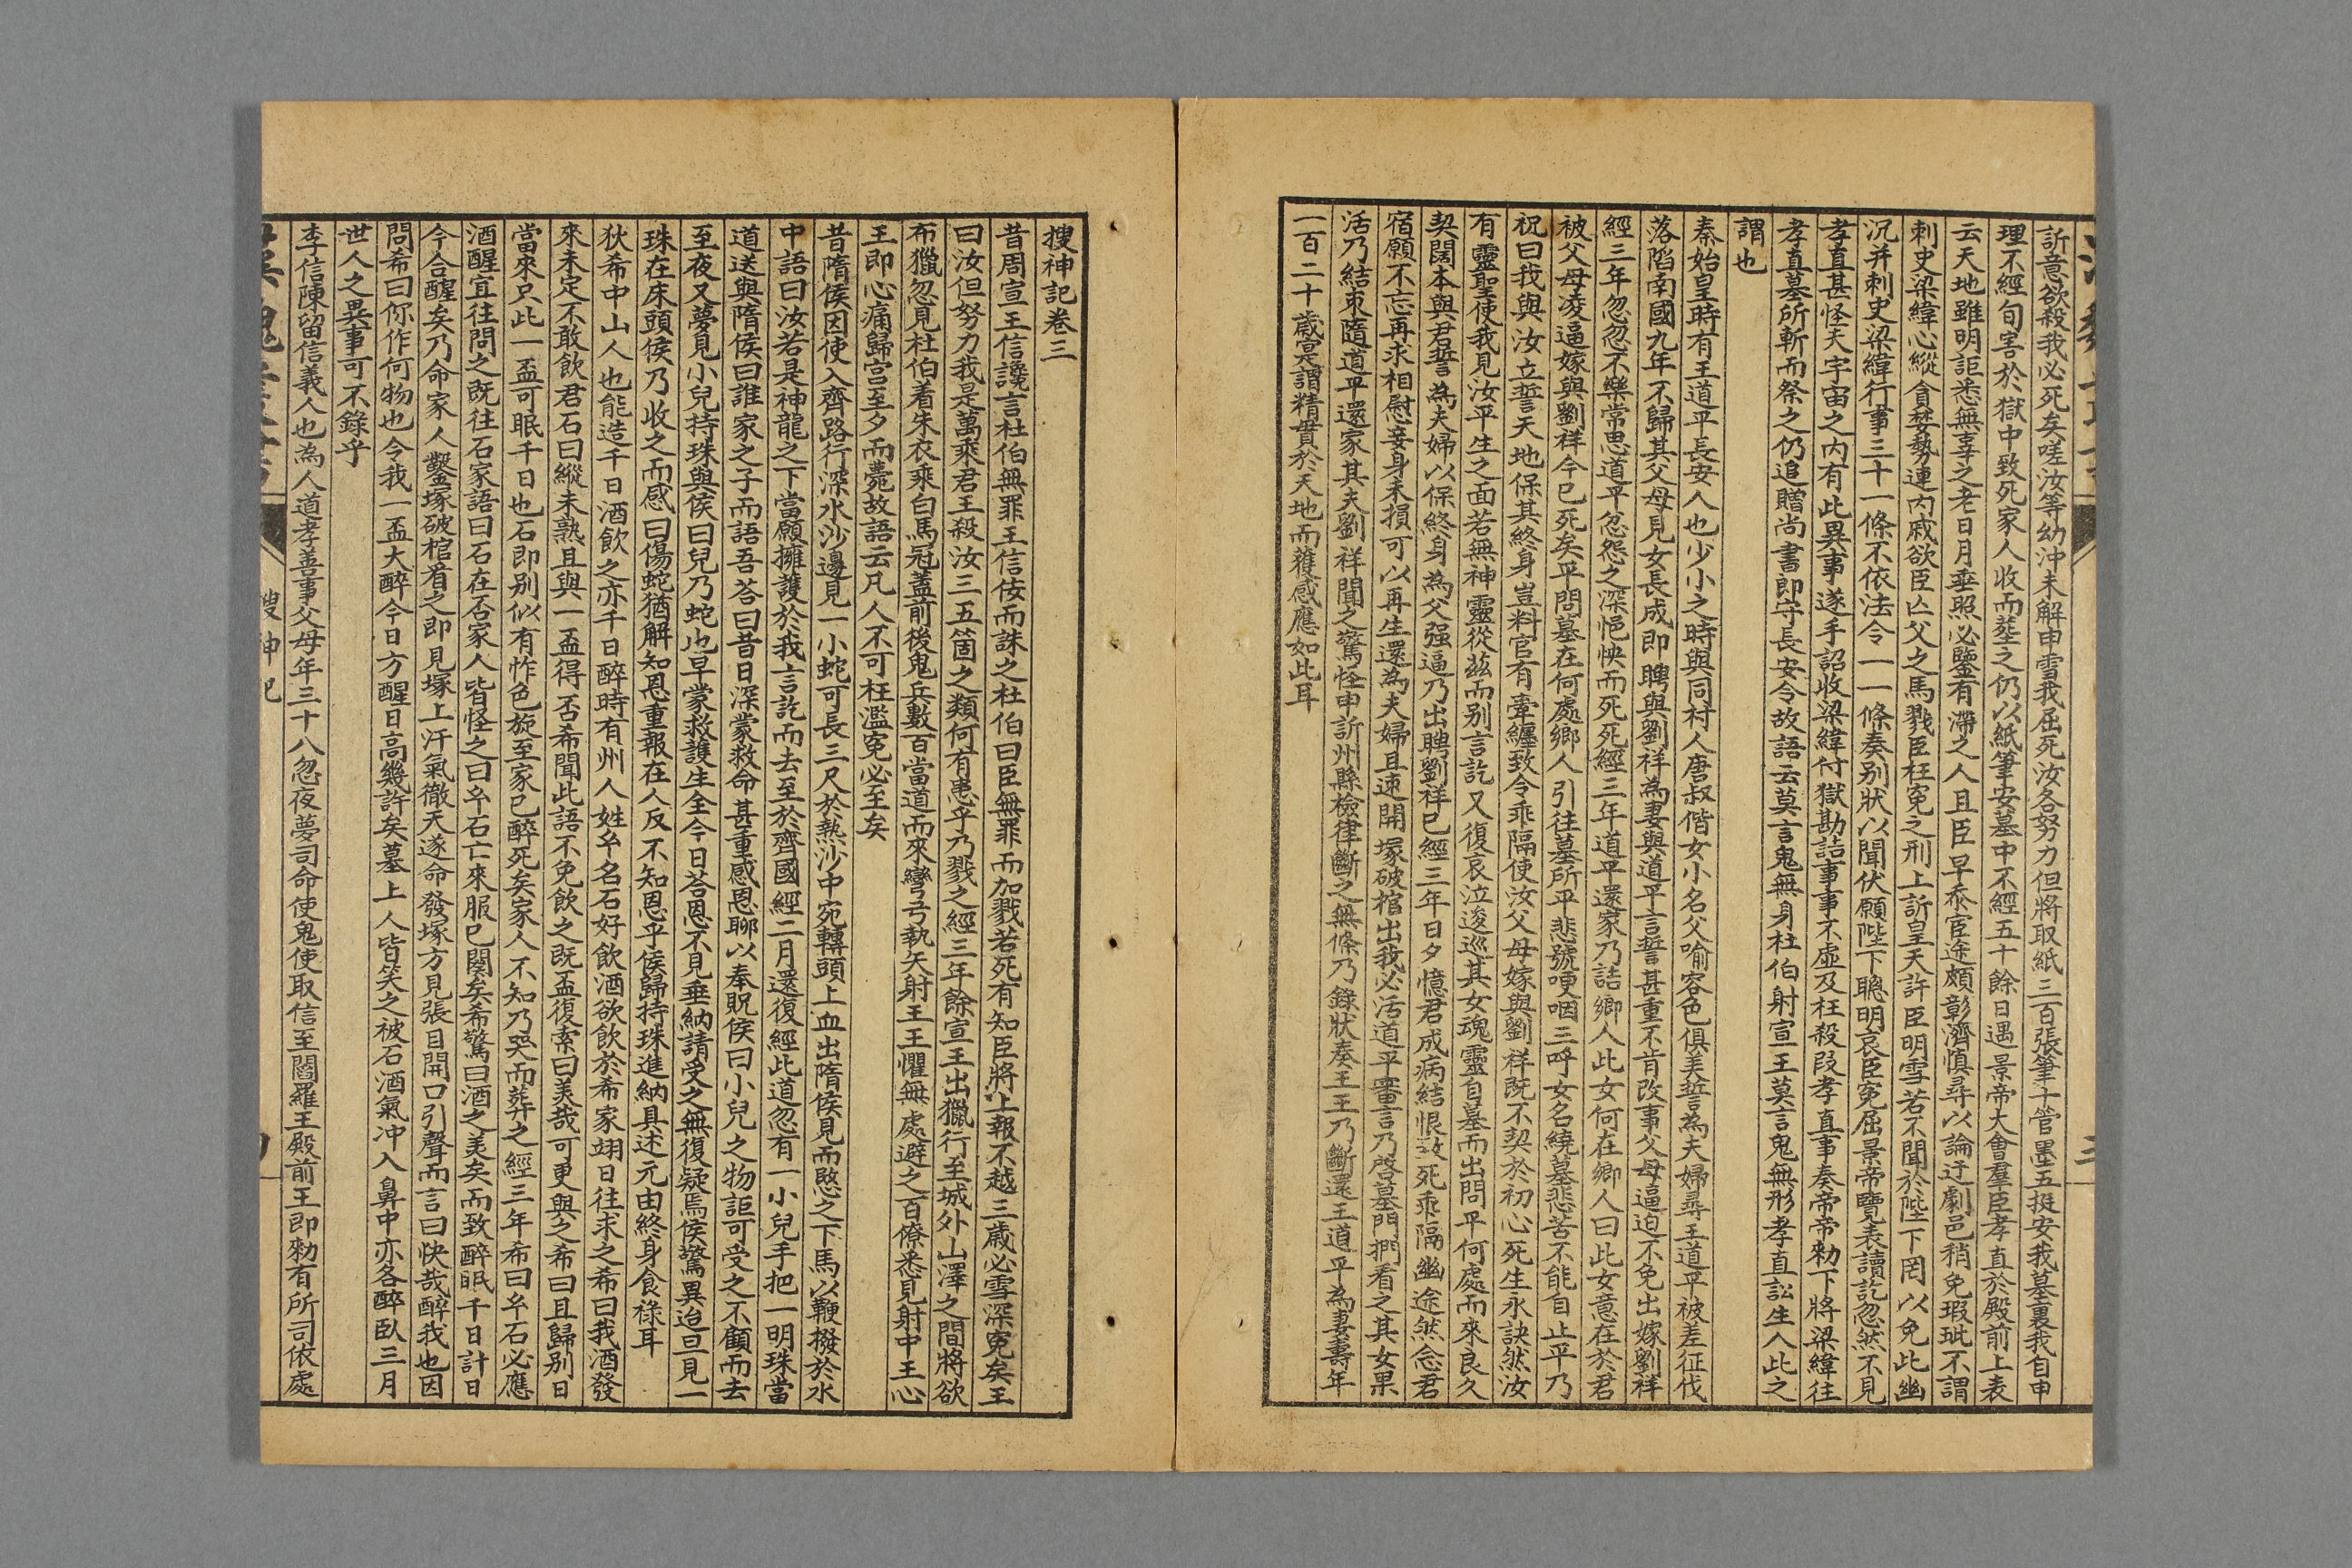 訢意欲殺我必死矣嗟汝等幼沖未解申雪我屈死汝各努力但將取紙三百張筆十管墨五挺安我墓裏我自申
理不經旬害於獄中致死家人收而塟之仍以紙筆安墓中不經五十餘日遇景帝大會羣臣孝直於殿前上表
云天地雖明詎悉無辜之老日月垂照必鑒有滯之人且臣早忝宦途頗彰濟慎尋以論迂劇邑稍免瑕玼不謂
刺史梁緯心縱貪婪勢連内戚欲臣亾父之馬戮臣枉寃之刑上訢皇天許臣明雪若不聞於陛下罔以免此幽
沉并刺史梁緯行事三十一條不依法令一一條奏别狀以聞伏願陛下聰明哀臣寃屈景帝覽表讀訖忽然不見
孝直甚怪天宇宙之内有此異事遂手詔收梁緯付獄勘詰事事不虚及枉殺叚孝直事奏帝帝勑下將梁緯往
孝直墓所斬而祭之仍追贈尚書郎守長安令故語云莫言鬼無身杜伯射宣王莫言鬼無形孝直訟生人此之
謂也
秦始皇時有王道平長安人也少小之時與同村人唐叔偕女小名父喻容色俱美誓為夫婦尋王道平被差征伐
落陷南國九年不歸其父母見女長成即聘與劉祥為妻與道平言誓甚重不肯改事父母逼迫不免出嫁劉祥
經三年忽忽不樂常思道平忿怨之深悒怏而死死經三年道平還家乃詰鄉人此女何在鄉人曰此女意在於君
被父母凌逼嫁與劉祥今已死矣平問墓在何處鄉人引往墓所平悲號哽咽三呼女名繞墓悲苦不能自止平乃
祝曰我與汝立誓天地保其終身豈料官有牽纏致令乖隔使汝父母嫁與劉祥既不契於初心死生永訣然汝
有靈聖使我見汝平生之面若無神靈從兹而别言訖又復哀泣逡巡其女魂靈自墓而出問平何處而來良久
契闊本與君誓為夫婦以保終身為父强逼乃出聘劉祥已經三年日夕憶君成病結恨致死乖隔幽途然念君
宿願不忘再求相慰妾身未損可以再生還為夫婦且速開塚破棺出我必活道平審言乃啓墓門捫看之其女果
活乃結束隨道平還家其夫劉祥聞之驚怪申訢州縣檢律斷之無條乃錄狀奏王王乃斷還王道平為妻壽年
一百二十歲寔謂精貫於天地而獲感應如此耳
搜神記卷三
昔周宣王信讒言杜伯無罪王信佞而誅之杜伯曰臣無罪而加戮若死有知臣將上報不越三歲必雪深寃矣王
曰汝但努力我是萬乘君王殺汝三五箇之類何有患乎乃戮之經三年餘宣王出獵行至城外山澤之間將欲
布獵忽見杜伯着朱衣乘白馬冠蓋前後鬼兵數百當道而來彎弓執矢射王王懼無處避之百僚悉見射中王心
王即心痛歸宫至夕而薨故語云凡人不可枉濫寃必至矣
昔隋侯因使入齊路行深水沙邊見一小蛇可長三尺於熱沙中宛轉頭上血出隋侯見而愍之下馬以鞭撥於水
中語曰汝若是神龍之下當願擁護於我言訖而去至於齊國經二月還復經此道忽有一小兒手把一明珠當
道送與隋侯曰誰家之子而語吾荅曰昔日深蒙救命甚重感恩聊以奉貺侯曰小兒之物詎可受之不顧而去
至夜又夢見小兒持珠與侯曰兒乃蛇也早蒙救護生全今日荅恩不見垂納請受之無復疑焉侯驚異迨旦見一
珠在床頭侯乃收之而感曰傷蛇猶解知恩重報在人反不知恩乎侯歸持珠進納具述元由終身食祿耳
狄希中山人也能造千日酒飲之亦千日醉時有州人姓𢆯名石好飲酒欲飲於希家翊日往求之希曰我酒發
來未定不敢飲君石曰縱未熟且與一盃得否希聞此語不免飲之既盃復索曰美哉可更與之希曰且歸别日
當來只此一盃可眠千日也石即别似有怍色旋至家已醉死矣家人不知乃哭而葬之經三年希曰𢆯石必應
酒醒宜往問之既往石家語曰石在否家人皆怪之曰𢆯石亡來服已闋矣希驚曰酒之美矣而致醉眠千日計日
今合醒矣乃命家人鑿塚破棺看之即見塚上汗氣徹天遂命發塚方見張目開口引聲而言曰快哉醉我也因
問希曰你作何物也令我一盃大醉今日方醒日高幾許矣墓上人皆笑之被石酒氣冲入鼻中亦各醉臥三月
世人之異事可不錄乎
李信陳留信義人也為人道孝善事父母年三十八忽夜夢司命使鬼使取信至閻羅王殿前王即勑有所司依處
搜神記